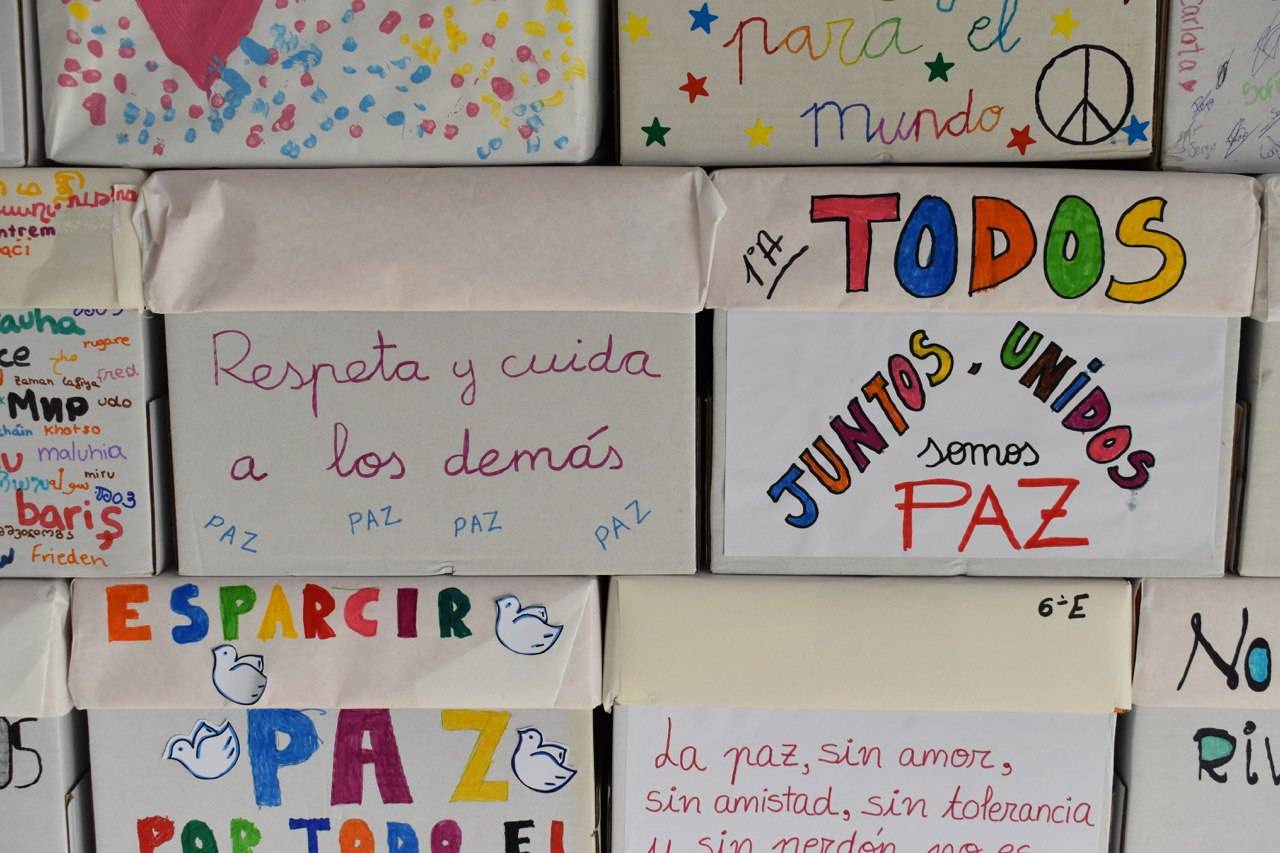 para el
mundo
Carlota
Sergio
ntrem
rugare
fred
zaman lafiya
Мир
udo
khotso
maluhia
miru
barış
Frieden
Respeta y cuida
a los demás
PAZ PAZ PAZ PAZ
1ºA
TODOS
JUNTOS, UNiDOS
somos
PAZ
ESPARCIR
PAZ
POR TODO EL
6ºE
La paz, sin amor,
sin amistad, sin tolerancia
y sin perdón, no es
No